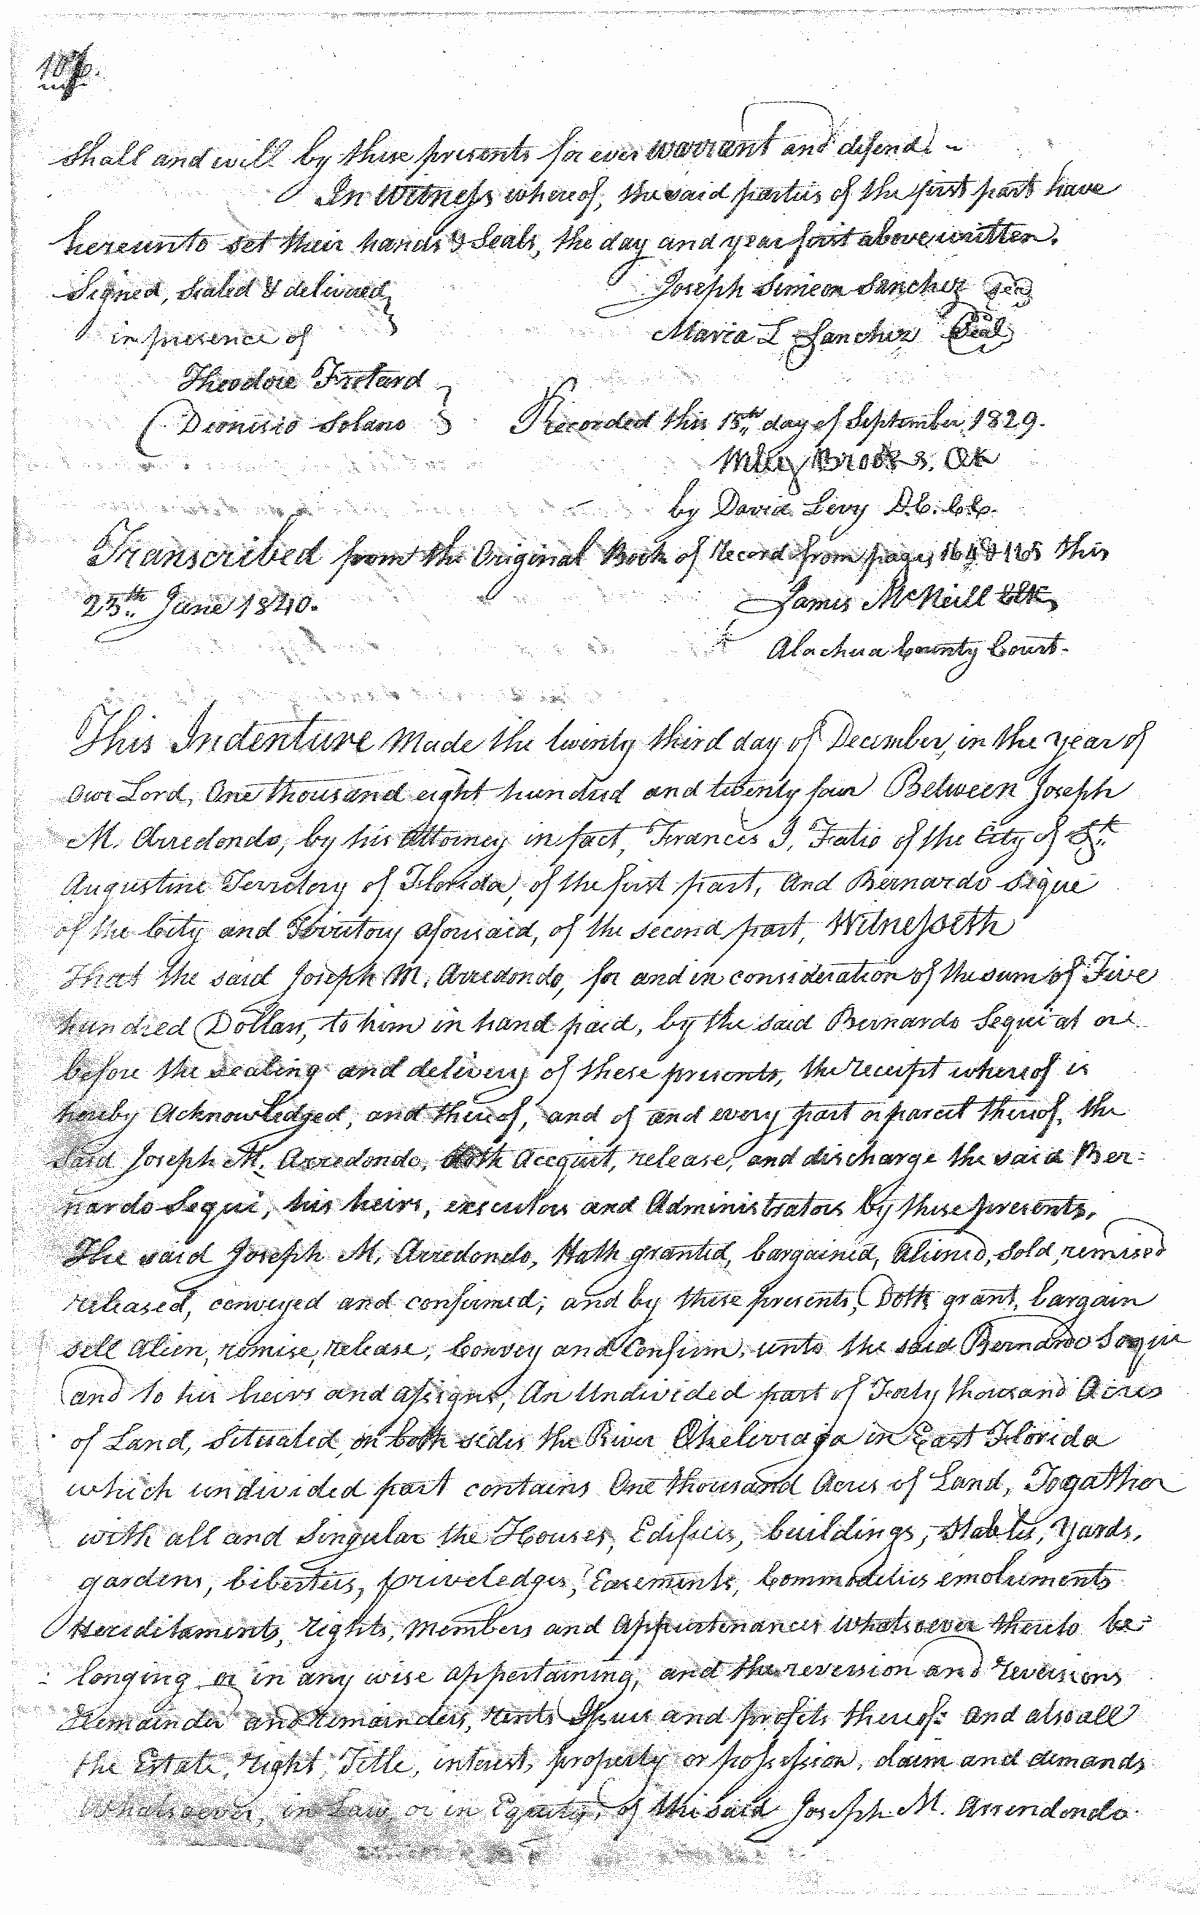 shall and will by these presents for ever warrant and defend. ~
In Witness whereof, the said parties of the first part have
hereunto set their hands & Seals, the day and year first above written.
Signed, sealed & delivered
in presence of
Joseph Simeon Sanchez Seal
Maria L Sanchez Seal
Theodore Flotard
Dionisio Solano
Recorded this 15th day of September, 1829.
Wiley Brooks. Clk
by David Levy D.C.
Transcribed from the Original Book of record from pages 164 & 165 this
25th June 1840.
James McNeill Clk
Alachua County Court.
This Indenture Made the twenty third day of December, in the year of
our Lord, One thousand eight hundred and twenty four Between Joseph
M. Arredondo, by his Attorney in fact, Frances J. Fatio of the City of St.
Augustine Territory of Florida, of the first part, and Bernardo Sequi
of the City and Territory aforesaid, of the second part, Witnesseth
That the said Joseph M. Arredondo, for and in consideration of the sum of Five
hundred Dollars, to him in hand paid, by the said Bernardo Sequi at or
before the sealing and delivery of these presents, the receipt whereof is
hereby Acknowledged, and thereof, and of and every part or parcel thereof, the
said Joseph M. Arredondo, doth Accquit, release, and discharge the said Ber=
nardo Sequi, his heirs, executors and Administrators by these presents.
The said Joseph M. Arredondo, Hath granted, bargained, aliened, sold, remised
released, conveyed and confirmed, and by these presents, Doth grant, bargain
sell alien, remise, release, Convey and Confirm, unto the said Bernardo Sequi
and to his heirs and assigns, An Undivided part of Forty thousand Acres
of Land, situated on both sides the River Chelivraga in East Florida
which undivided part contains One thousand Acres of Land, Togather
with all and Singular the Houses, Edifices, buildings, Stables, Yards,
gardens, Liberties, priveledges, Easements, Commodities emoluments
Hereditaments, rights, members and Appurtenances whatsoever thereto be=
longing or in any wise appertaining, and the reversion and reversions
Remainder and remainders, rents Issues and profits thereof: and also all
the Estate, right, Title, interest, property or possession, claim and demands
Whatsoever, in Law or in Equity, of the said Joseph M. Arrendondo